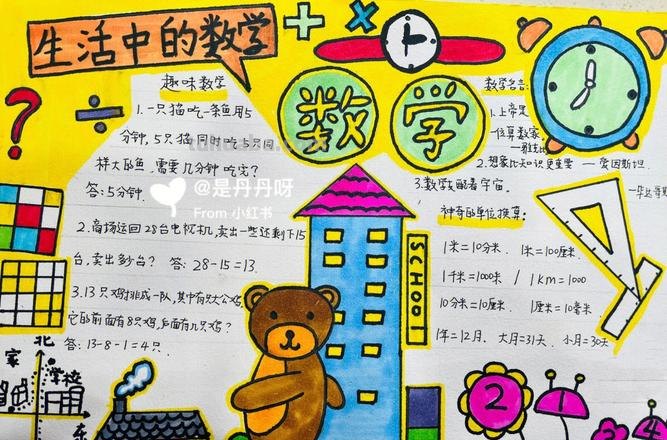 生活中的数学
数学
趣味数学
1.一只猫吃一条鱼用5
分钟,5只猫同时吃5只同
样大的鱼,需要几分钟吃完?
答:5分钟.
2.商场运回28台电视机,卖出一些还剩下15
台,卖出多少台? 答:28-15=13.
3.13只鸡排成一队,其中有只大公鸡,
它的前面有8只鸡,后面有几只鸡?
答:13-8-1=4只.
北
家
学校
东
@是丹丹呀
From 小红书
SCHOOL
数学名言:
1.上帝是
一位算数家
2.想象比知识更重要 一爱因斯坦.
3.数学支配着宇宙。
神奇的单位换算:
1米=10分米. 1米=100厘米.
1千米=1000米 / 1KM=1000
10分米=10厘米. 1厘米=10毫米.
1年=12月. 大月=31天. 小月=30天
2
1
4